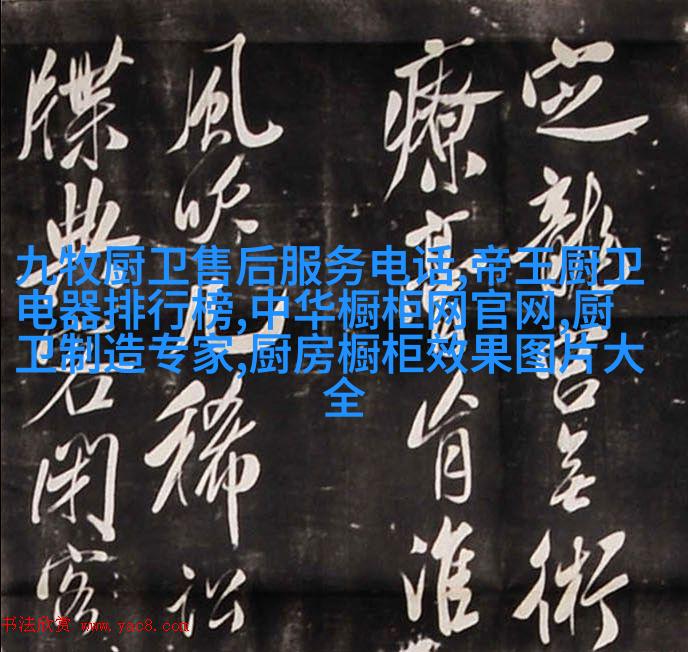 九牧厨卫售后服务电话,帝王厨卫
电器排行榜,中华橱柜网官网,厨
卫制造专家,厨房橱柜效果图片大
全
龍 無術
療 淮
風吹 稀訟
牒典 閑客
书法欣赏 www.yac8.com